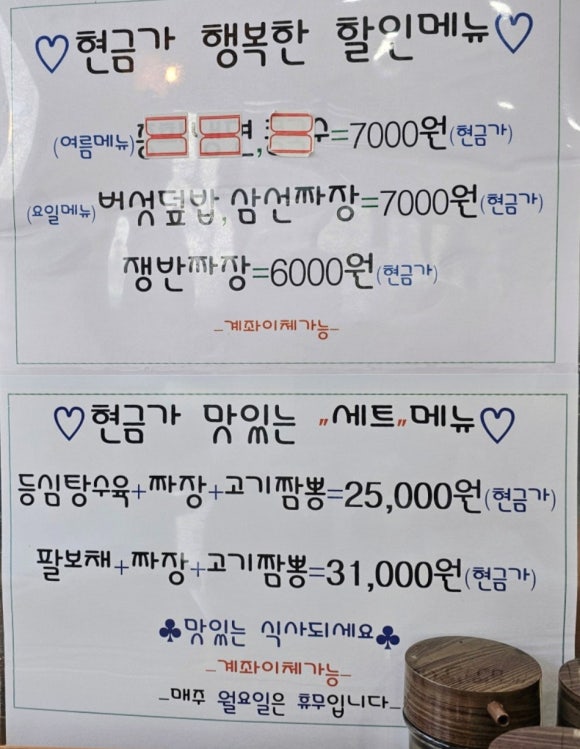 ♡현금가 행복한 할인메뉴♡
(여름메뉴) =7000원(현금가)
(요일메뉴)버섯덮밥,삼선짜장=7000원(현금가)
쟁반짜장=6000원(현금가)
-계좌이체가능-
♡현금가 맛있는 "세트"메뉴♡
등심탕수육+짜장+고기짬뽕=25,000원(현금가)
팔보채+짜장+고기짬뽕=31,000원(현금가)
♣맛있는 식사되세요♣
-계좌이체가능-
-매주 월요일은 휴무입니다-